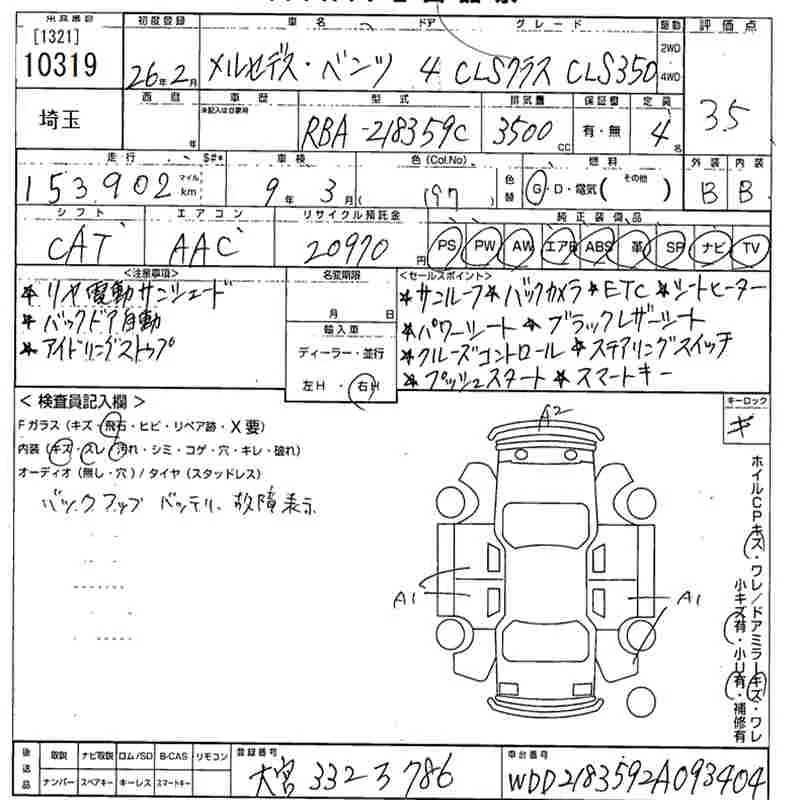 初度登録 車名 ドア グレード 駆動 評価点
[1321]
10319 26年2月 メルセデス・ベンツ 4 CLSクラス CLS350 2WD・4WD 3.5
西暦 車歴 型式 排気量 保証書 定員
埼玉 年 未記入は自家用 RBA-218359C 3500cc 有・無 4名
走行 S#* 車検 色(Col.No) 燃料 外装 内装
153,902 マイル km 9年 3月 ( 197 ) 色替 G・D・電気(その他 ) B B
シフト エアコン リサイクル預託金 純正装備品
CAT AAC 20970円 PS PW AW エアB ABS 革 SR ナビ TV
<注意事項> 名変期限 <セールスポイント>
★リヤ電動サンシェード 月 日 ★サンルーフ★バックカメラ★ETC★シートヒーター
★バックドア自動 輸入車 ★パワーシート★ブラックレザーシート
★アイドリングストップ ディーラー・並行 ★クルーズコントロール★ステアリングスイッチ
左H・右H ★プッシュスタート★スマートキー
<検査員記入欄> キーロック
Fガラス(キズ・飛石・ヒビ・リペア跡・X要) A2 キ
内装(キズ・スレ・汚れ・シミ・コゲ・穴・キレ・破れ)
オーディオ(無し・穴)/タイヤ(スタッドレス)
バックアップ バッテリー 故障表示
A1 A1
ホイルCPキズ・ワレ/ドアミラーキズ・ワレ
小キズ有・小U有・補修有
後送品 取説 ナビ取説 ロム/SD B-CAS リモコン 登録番号 車台番号
ナンバー スペアキー キーレス スマートキー 大宮 332 ろ 786 WDD2183592A093404